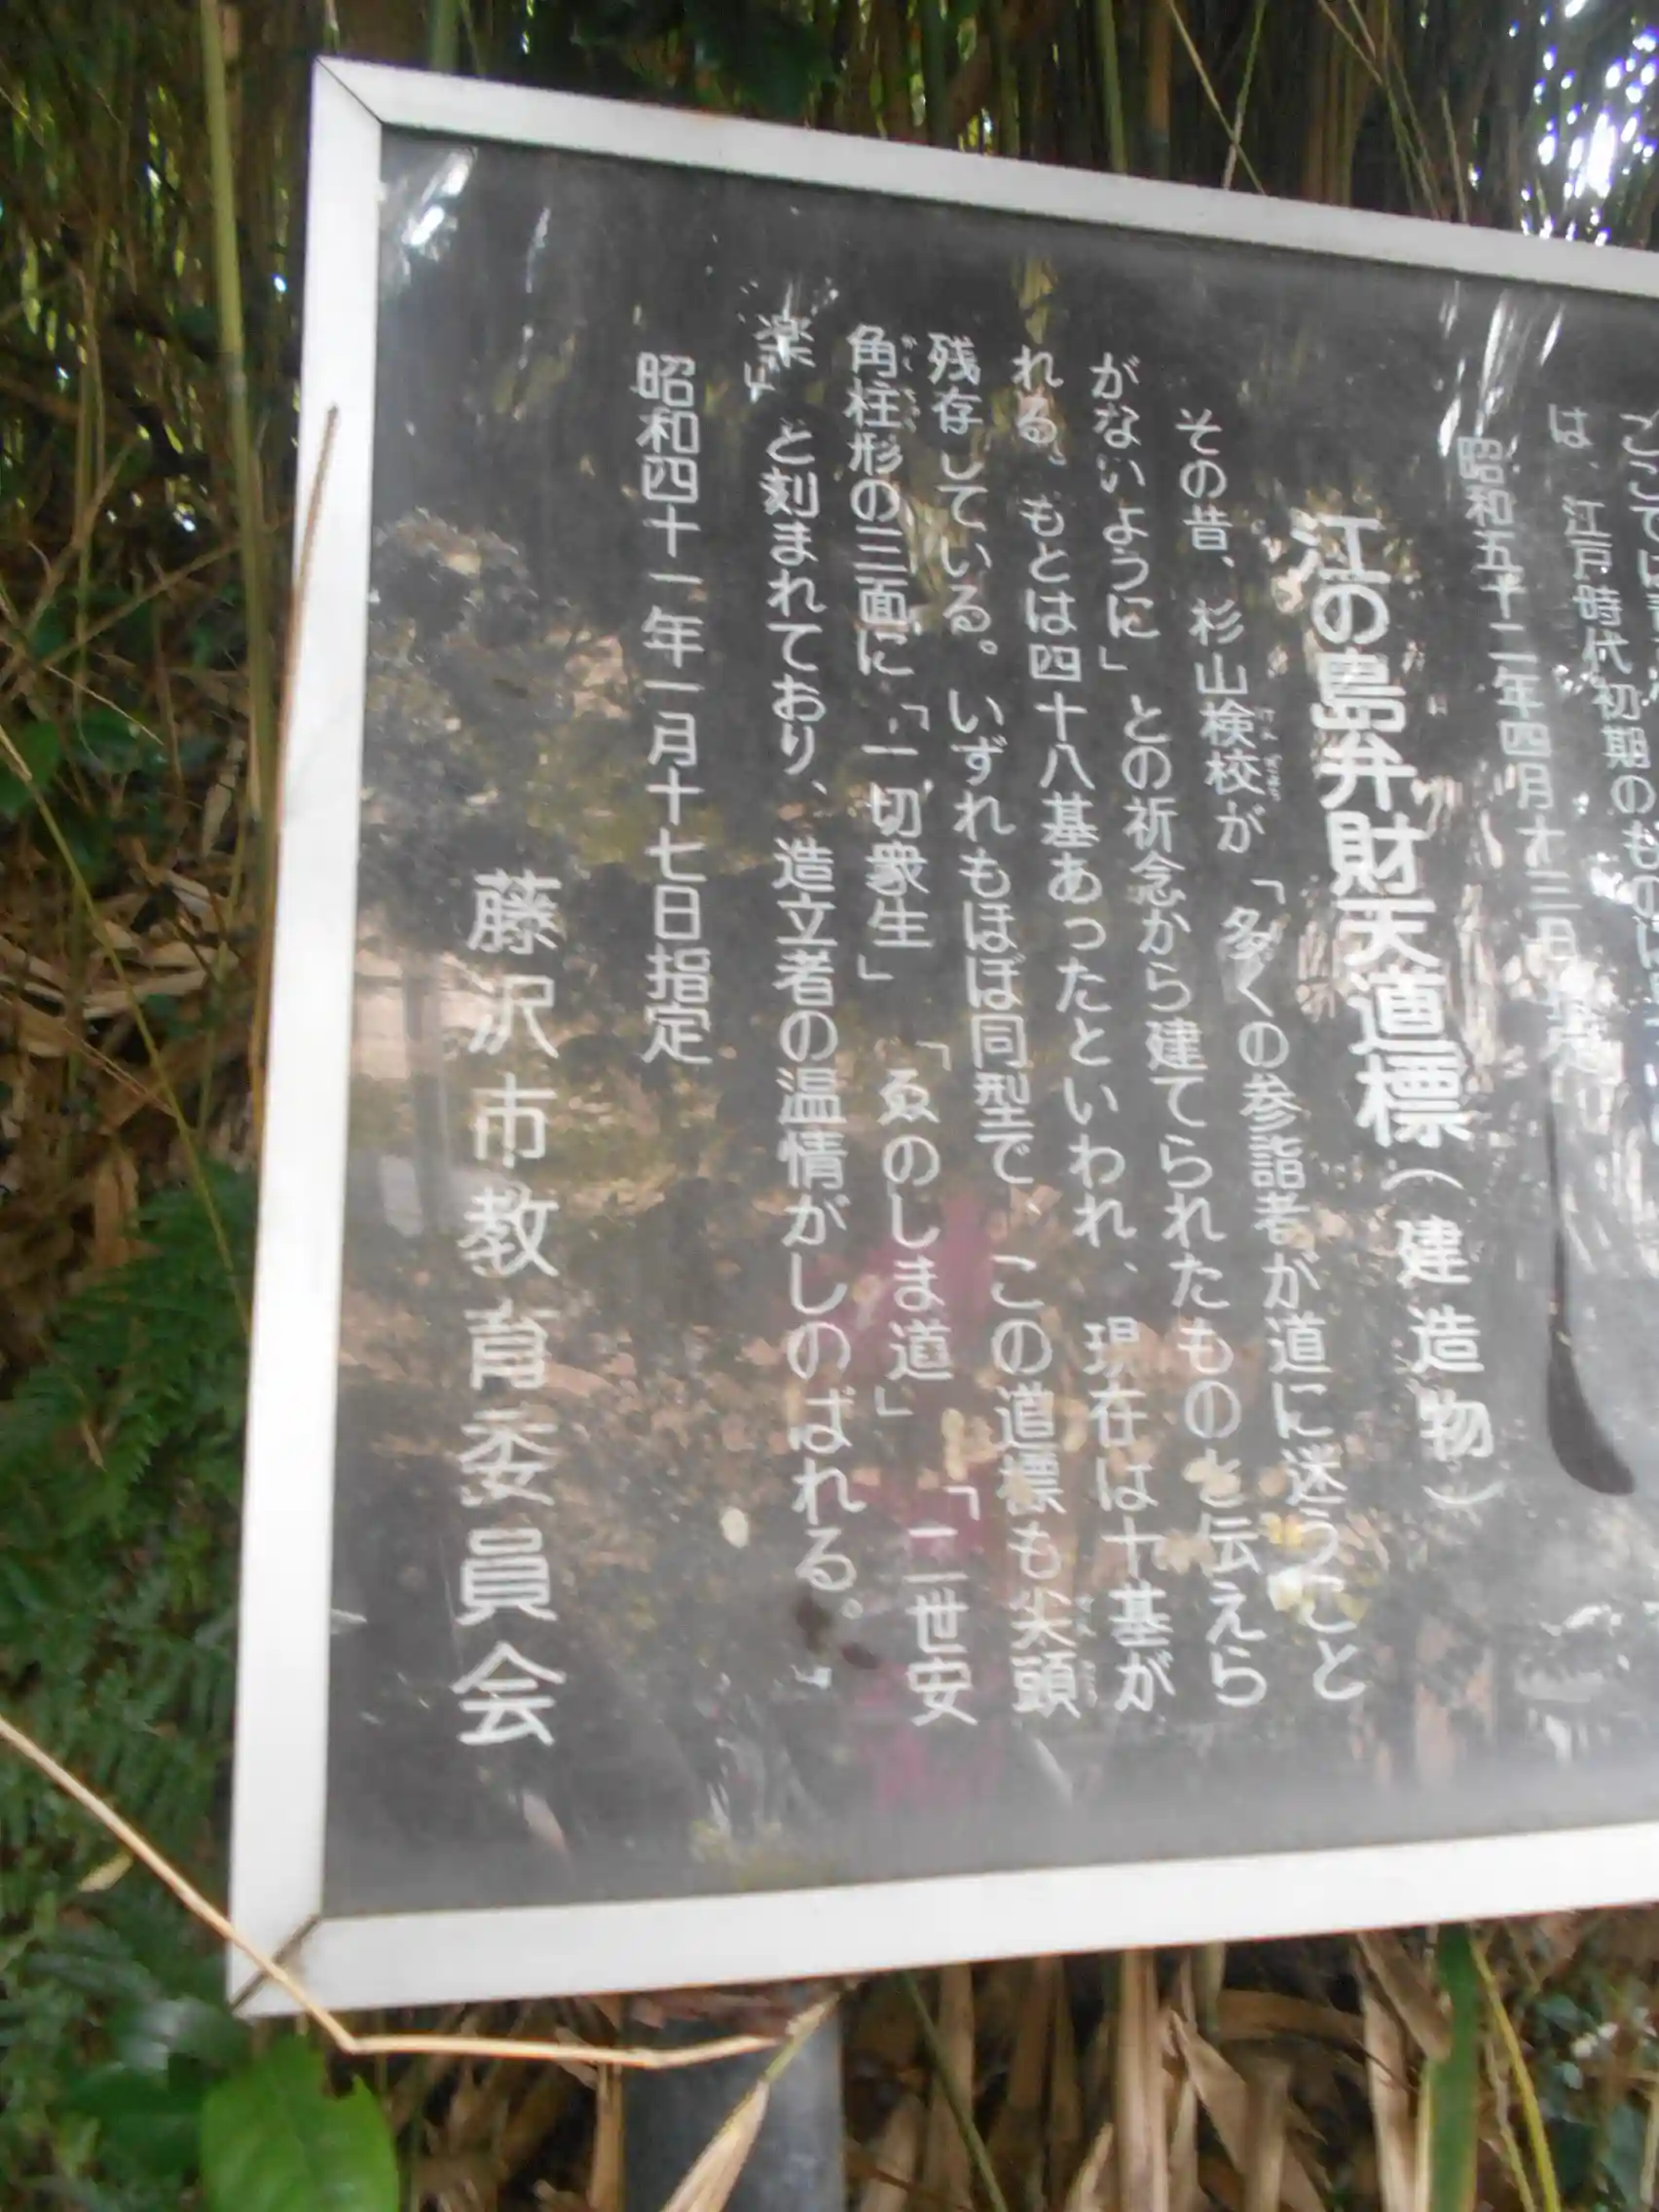 は、江戸時代初期のものは
昭和五十二年四月十三日指定
江の島弁財天道標(建造物)
その昔、杉山検校が「多くの参詣者が道に迷うこと
がないように」との祈念から建てられたものと伝えら
れる。もとは四十八基あったといわれ、現在は十基が
残存している。いずれもほぼ同型で、この道標も尖頭
角柱形の三面に「一切衆生」「ゑのしま道」「二世安
楽」と刻まれており、造立者の温情がしのばれる。
昭和四十一年一月十七日指定
藤沢市教育委員会